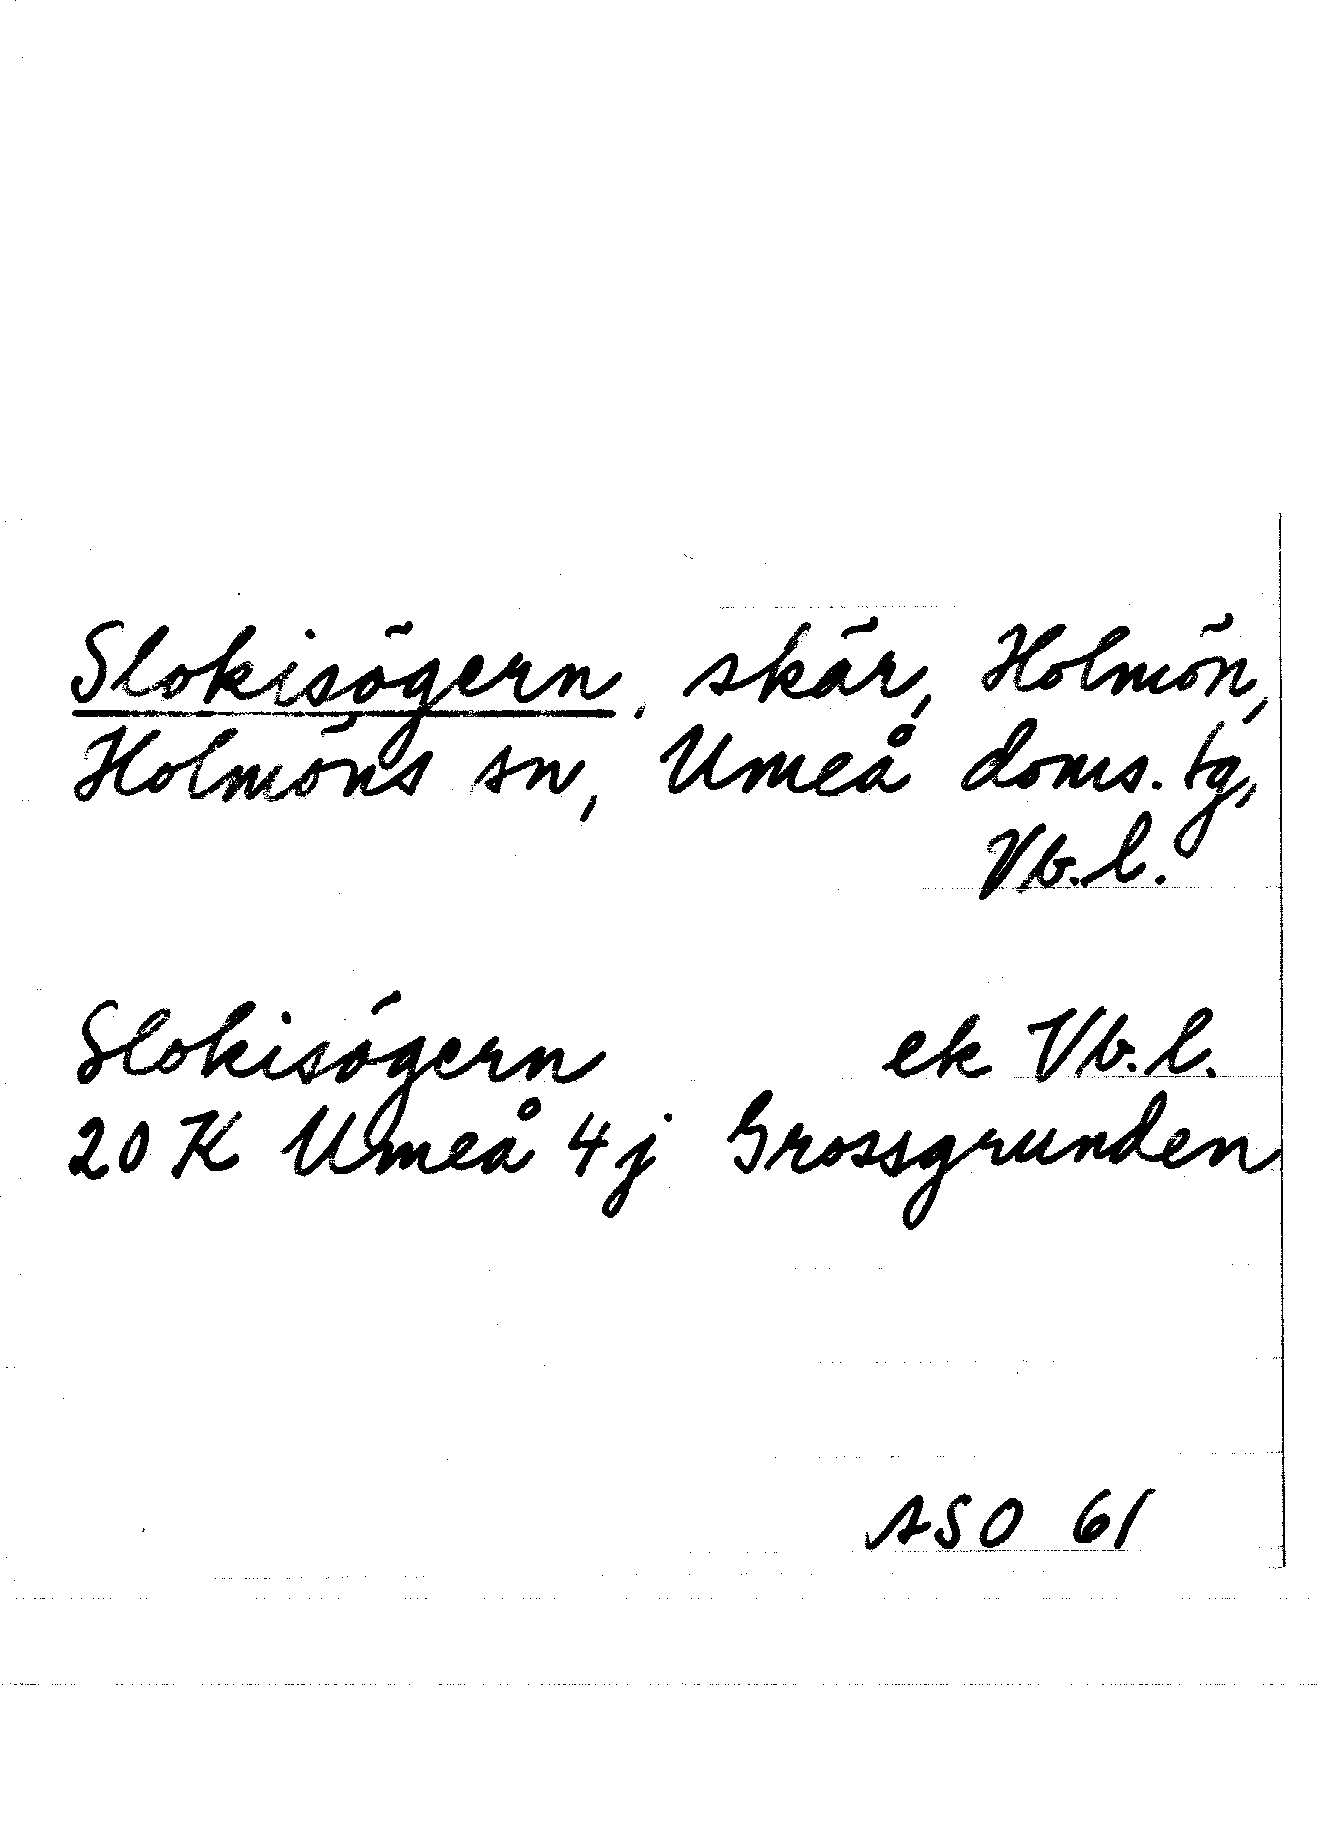 Slokisögern, skär, Holmön,
Holmöns sn, Umeå doms. tg,
Vb.l.
Slokisögern ek Vb.l.
20 K Umeå 4j Grossgrunden
ASO 61